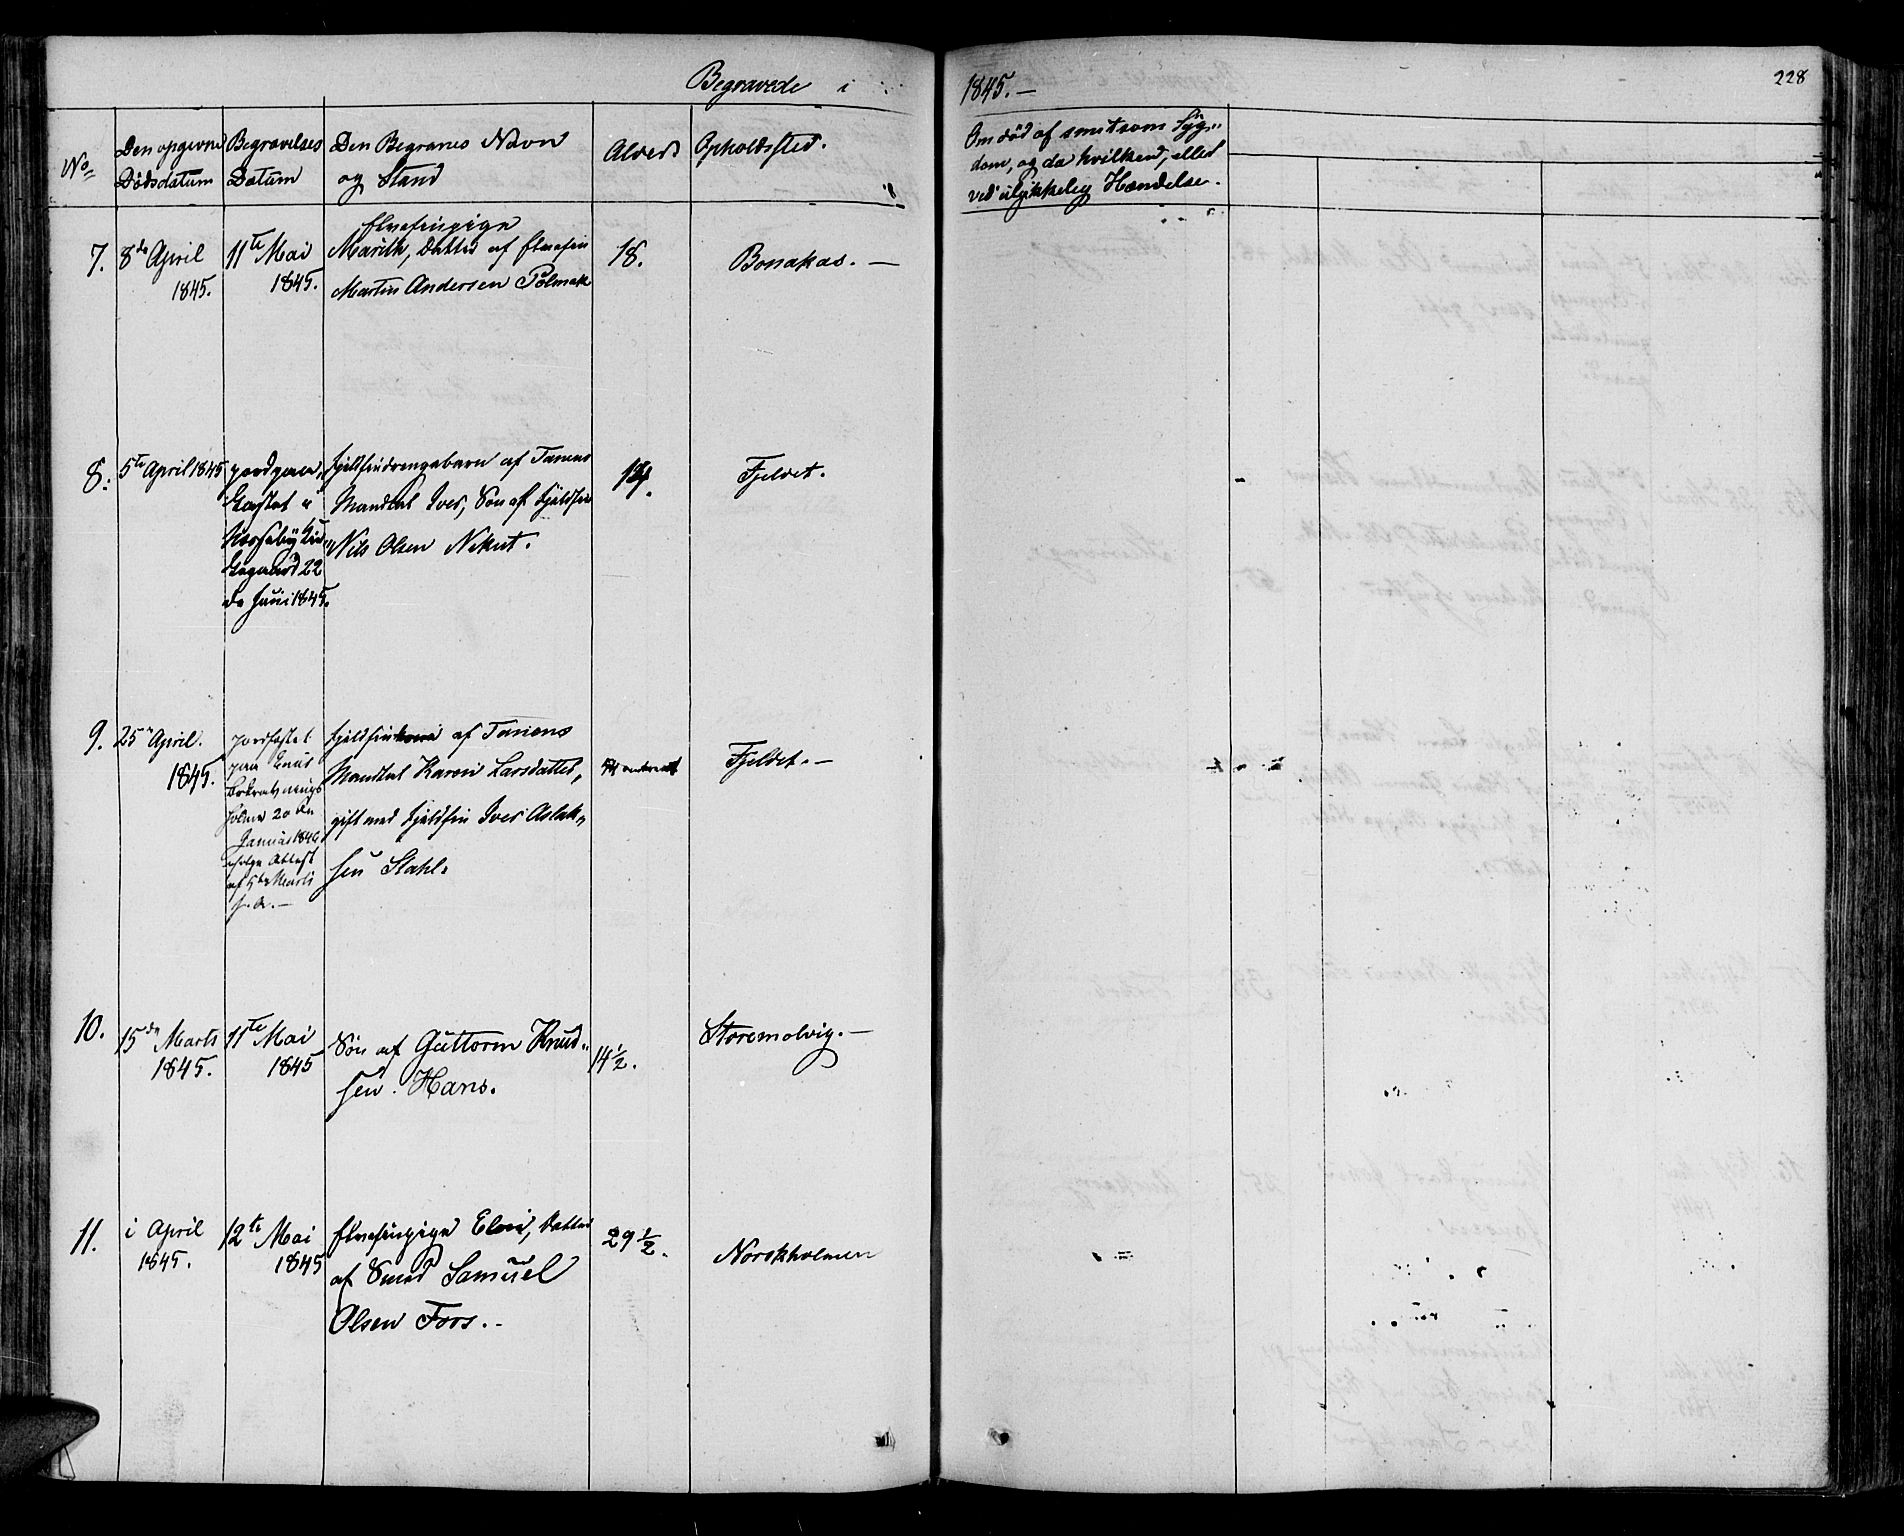 Begravede i
1845.—
228
No
Den opgivne Dødsdatum
Begravelses Datum
Den Begravnes Navn og Stand
Alder
Opholdssted.
Om død af smitsom Syg„
dom, og da hvilken, eller
ved ulykkelig Hændelse.
7.
8de April
1845.
11te Mai
1845.
Elvefinpige
Marith, Datter af Elvefin
Martin Andersen Polmak
18.
Bonakas. —
8.
5te April 1845
22
de Juni 1845.
af Tanens
Mandtal Iver, Søn af Fjeldfin
Nils Olsen Nikut.
Fjeldet.
9.
25de April.
1845.
jordfæstet
20de
Januar 1846
ifølge Attest
af 5te Marts
s. A. —
Fjeldfinkone af Tanens
Mandtal Karen Larsdatter,
gift med Fjeldfin Iver Aslak„
sen Stahl.
Fjeldet. —
10.
15de Marts
1845.
11te Mai
1845
Søn af Guttorm Knud„
sen. Hans.
14½.
Storemolvig. —
11.
i April
1845.
12te Mai
1845
Elvefinpige Elen, Datter
af Smed Samuel
Olsen Fors. -
29½.
Norskholmen